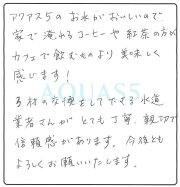 アクアス5のお水がおいしいので
家で淹れるコーヒーや紅茶の方が
カフェで飲むものより美味しく
感じます!
AQUAS5
部材の交換をして下さる水道
業者さんがとても丁寧、親切で
信頼感があります。今後とも
よろしくお願いいたします。